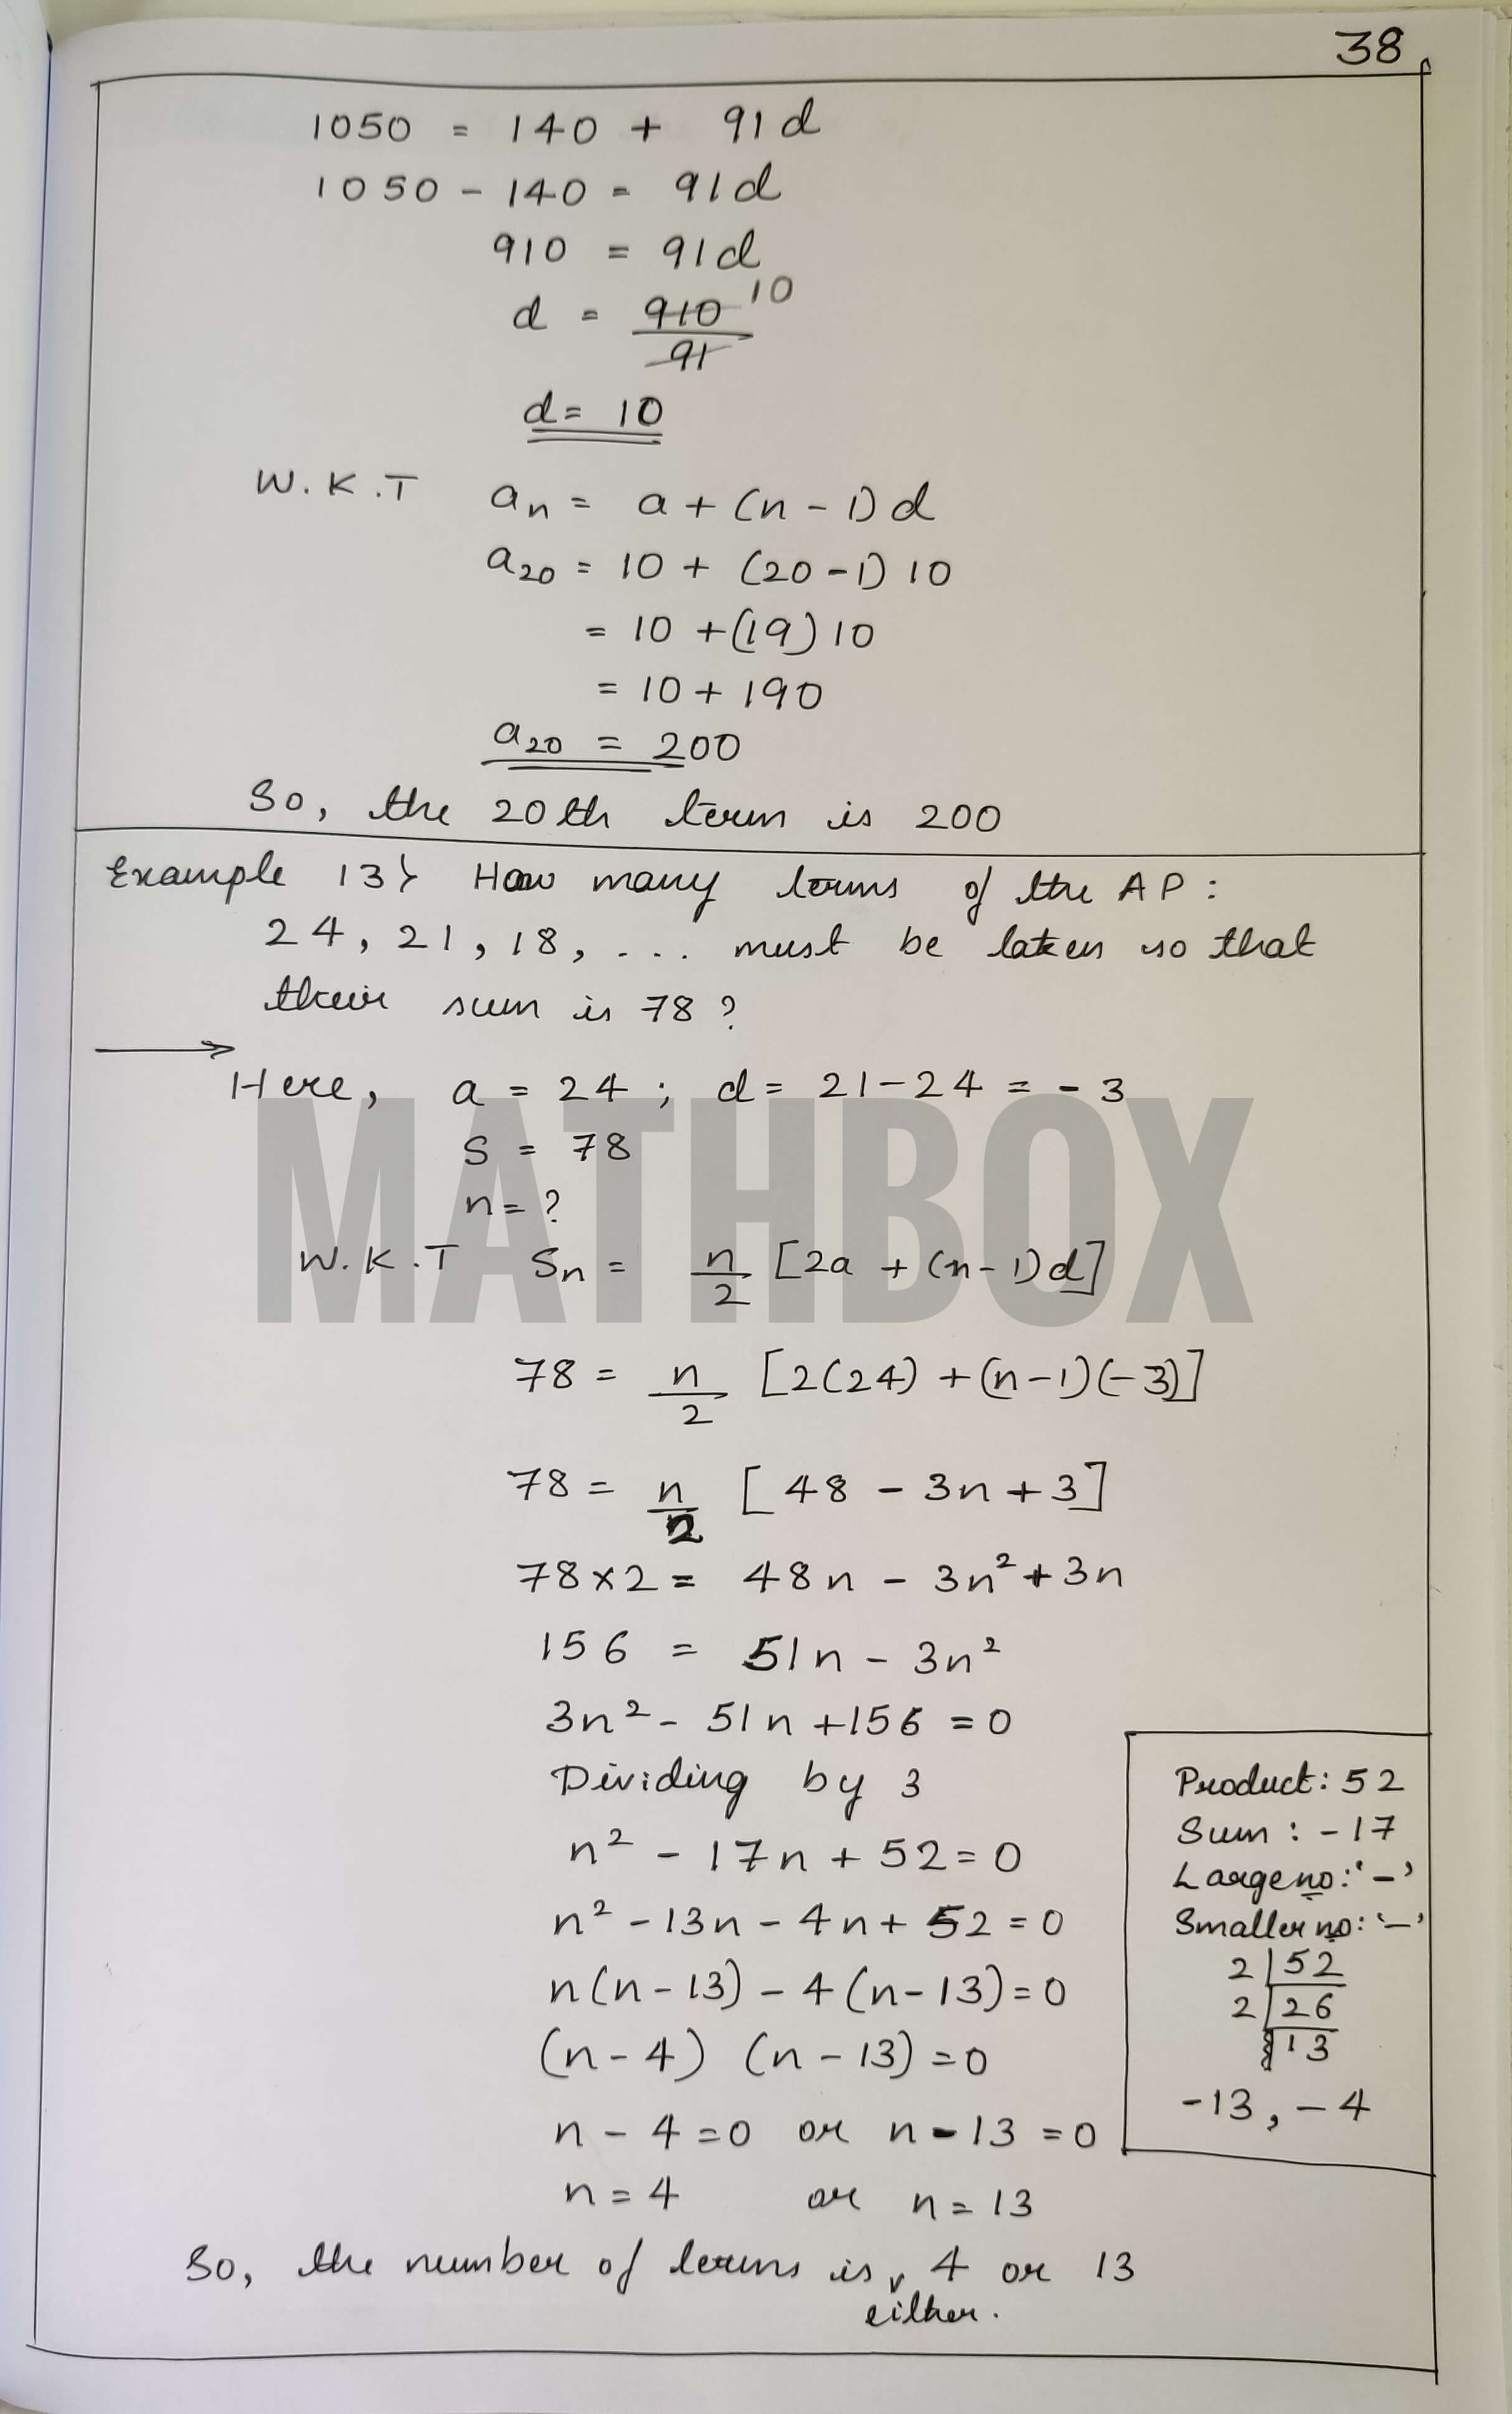 38
1050 = 140 + 91d
1050 - 140 = 91d
910 = 91d
d = 910/91 10
d = 10
W.K.T aₙ = a + (n - 1) d
a₂₀ = 10 + (20 - 1) 10
= 10 + (19) 10
= 10 + 190
a₂₀ = 200
So, the 20th term is 200
Example 13} How many terms of the AP :
24, 21, 18, ... must be taken so that
their sum is 78 ?
Here, a = 24 ; d = 21 - 24 = - 3
S = 78
n = ?
MATHBOX
W.K.T Sₙ = n/2 [2a + (n - 1) d]
78 = n/2 [2(24) + (n - 1)(-3)]
78 = n/2 [48 - 3n + 3]
78 × 2 = 48n - 3n² + 3n
156 = 51n - 3n²
3n² - 51n + 156 = 0
Dividing by 3
n² - 17n + 52 = 0
n² - 13n - 4n + 52 = 0
n(n - 13) - 4(n - 13) = 0
(n - 4) (n - 13) = 0
n - 4 = 0 or n - 13 = 0
n = 4 or n = 13
Product : 52
Sum : - 17
Large no : '-'
Smaller no : '-'
2 | 52
2 | 26
13
-13, - 4
So, the number of terms is, 4 or 13
either.